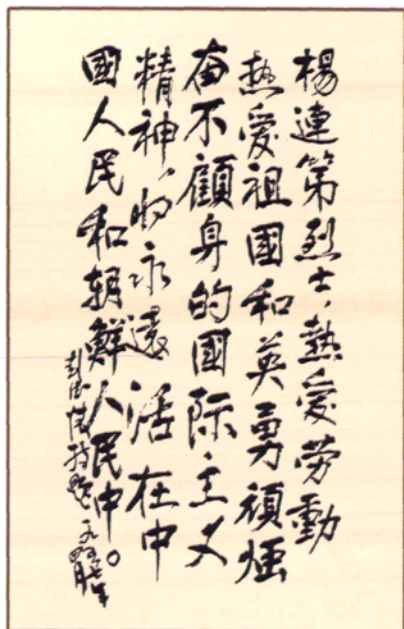 楊連第烈士、熱愛劳動
热愛祖國和英勇頑强
奋不顧身的國际主义
精神,将永遠活在中
國人民和朝鮮人民中。
彭德怀 题 一九五七年